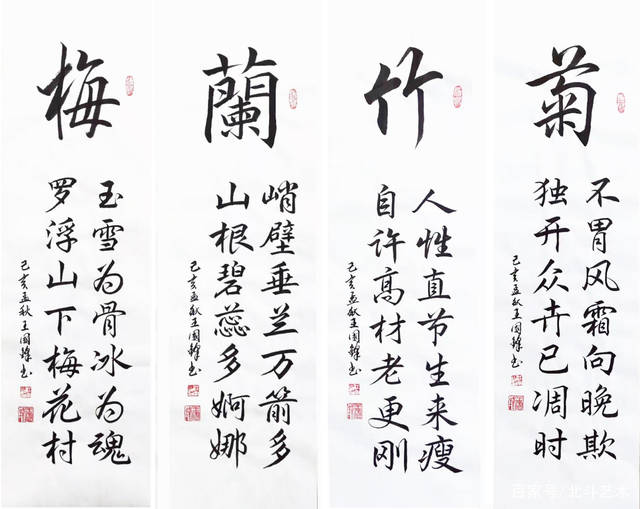 梅
玉雪为骨冰为魂
罗浮山下梅花村
己亥孟秋王国锋书
蘭
峭壁垂兰万箭多
山根碧蕊多婀娜
己亥孟秋王国锋书
竹
人性直节生来瘦
自许高材老更刚
己亥孟秋王国锋书
菊
不胃风霜向晚欺
独开众卉已凋时
己亥孟秋王国锋书
百家号/北斗艺术